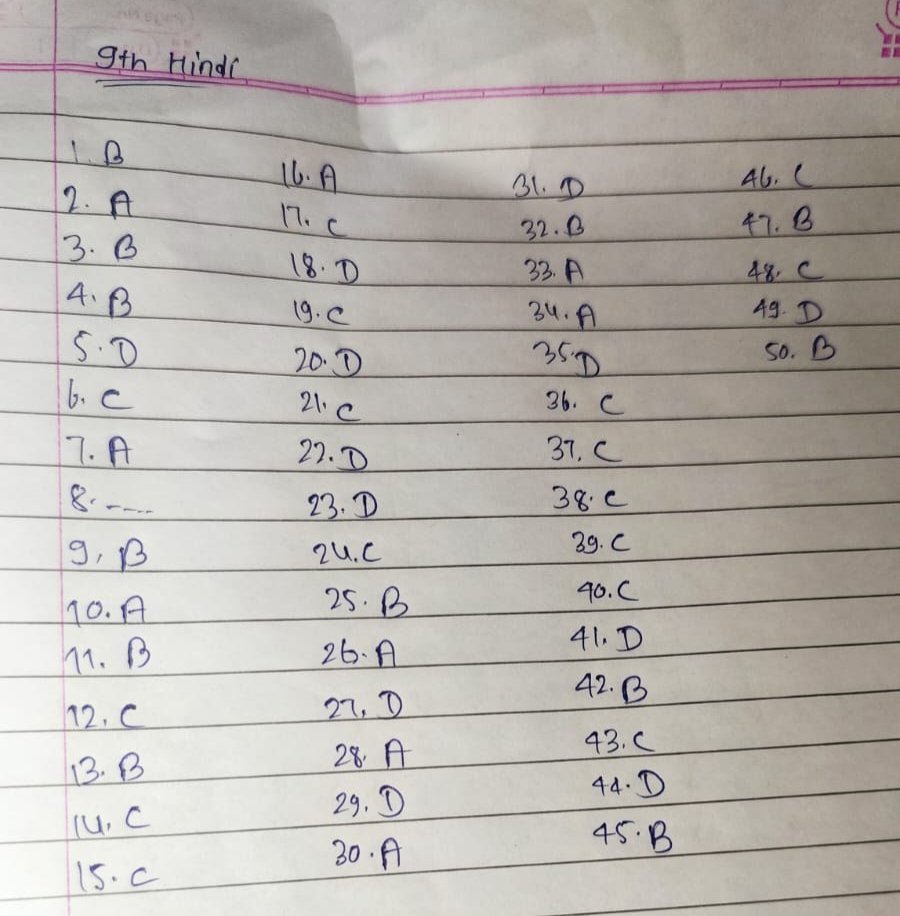 9th Hindi
1. B
2. A
3. B
4. B
5. D
6. C
7. A
8. ----
9, B
10. A
11. B
12. C
13. B
14. C
15. C
16. A
17. C
18. D
19. C
20. D
21. C
22. D
23. D
24. C
25. B
26. A
27. D
28. A
29. D
30. A
31. D
32. B
33. A
34. A
35. D
36. C
37. C
38. C
39. C
40. C
41. D
42. B
43. C
44. D
45. B
46. C
47. B
48. C
49. D
50. B